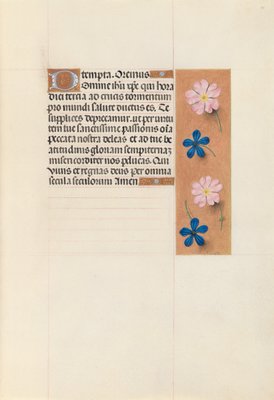 tempta. Oremus
Domine ihu xpe qui hora
dici tercia ad crucis tormentum
pro mundi salute ductus es. Te
supplices deprecamur. ut per uirtu
tem tue sanctissime passionis oīa
peccata nostra deleas et ad tue be
atitudinis gloriam sempiterna
misericorditer nos pducas. Qui
uiuis et regnas deus per omnia
secula seculorum Amen